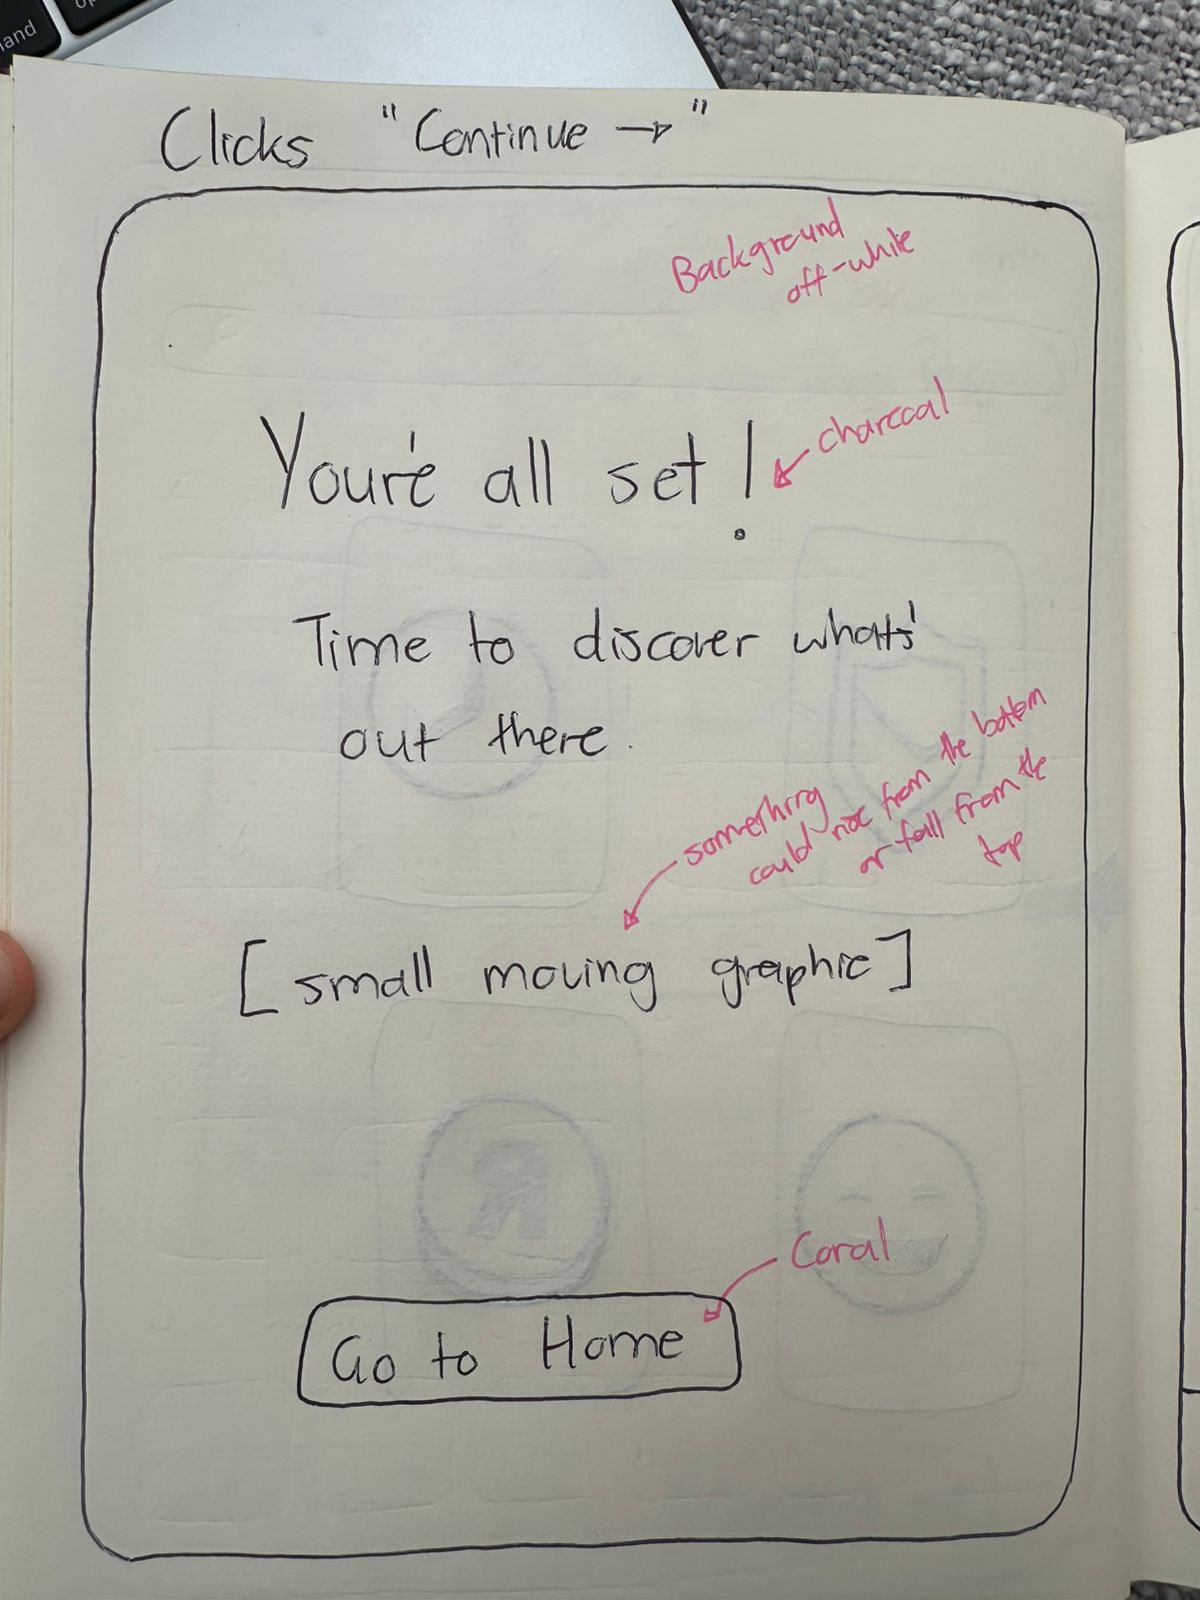 and
op
Clicks "Continue →"
Background
off-white
charcoal
Your'e all set!
Time to discover whats'
out there.
something
could rise from the bottom
or fall from the
top
[small moving graphic]
Coral
Go to Home